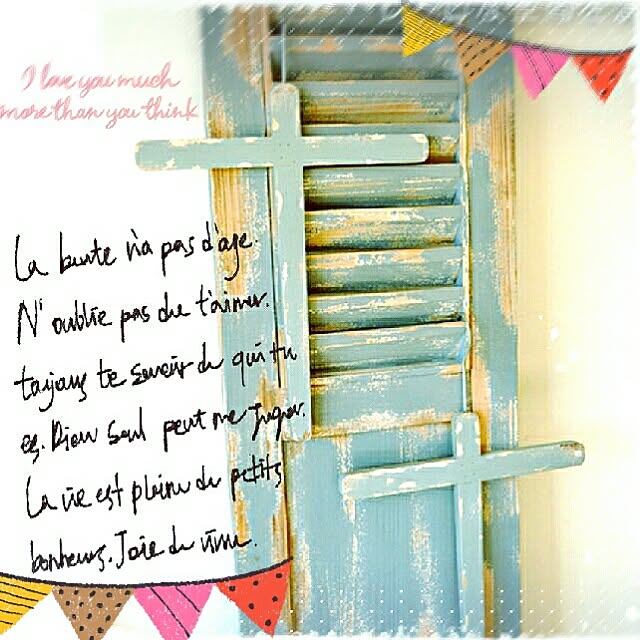 I love you much
more than you think
La beaute n'a pas d'age.
N'oublie pas de t'aimer.
toujours te savoir de qui tu
es. Dieu seul peut me juger.
La vie est pleine de petits
bonheurs. Joie de vivre.